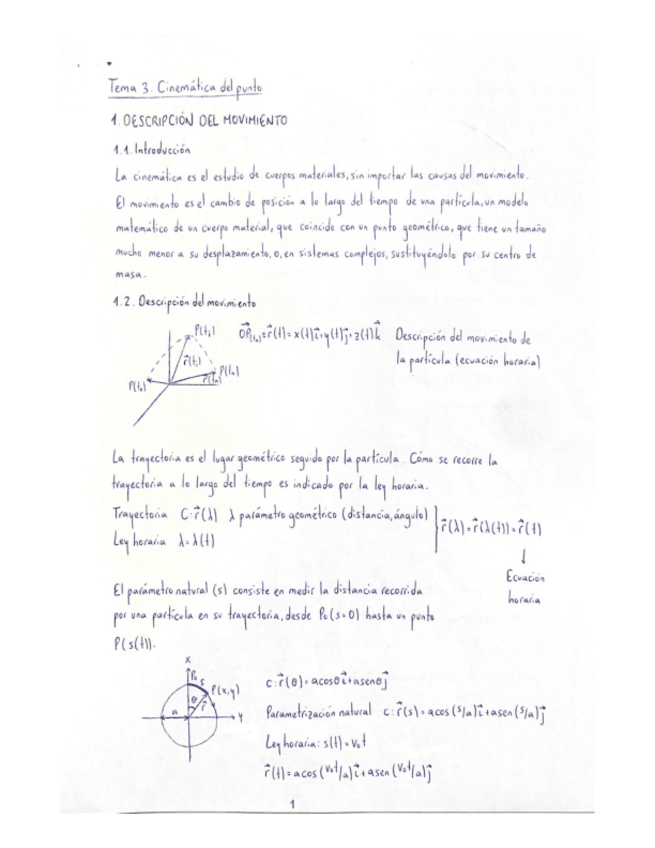 Tema 3. Cinemática del punto
1. DESCRIPCIÓN DEL MOVIMIENTO
1.1. Introducción
La cinemática es el estudio de cuerpos materiales, sin importar las causas del movimiento.
El movimiento es el cambio de posición a lo largo del tiempo de una partícula, un modelo
matemático de un cuerpo material, que coincide con un punto geométrico, que tiene un tamaño
mucho menor a su desplazamiento, o, en sistemas complejos, sustituyéndolo por su centro de
masa.
1.2. Descripción del movimiento
P(t₁) r⃗(t₁) P(t₀)
OP⃗(t) = r⃗(t) = x(t)i⃗ + y(t)j⃗ + z(t)k⃗ Descripción del movimiento de
la partícula (ecuación horaria)
La trayectoria es el lugar geométrico seguido por la partícula. Cómo se recorre la
trayectoria a lo largo del tiempo es indicado por la ley horaria.
Trayectoria C: r⃗(λ) λ parámetro geométrico (distancia, ángulo)
Ley horaria λ = λ(t)
r⃗(λ) = r⃗(λ(t)) = r⃗(t)
↓
Ecuación
horaria
El parámetro natural (s) consiste en medir la distancia recorrida
por una partícula en su trayectoria, desde P₀ (s=0) hasta un punto
P(s(t)).
x
P₀ s P(x,y)
θ r⃗
a y
c: r⃗(θ) = acosθ i⃗ + asenθ j⃗
Parametrización natural c: r⃗(s) = acos(s/a)i⃗ + asen(s/a)j⃗
Ley horaria: s(t) = v₀t
r⃗(t) = acos(v₀t/a)i⃗ + asen(v₀t/a)j⃗
1